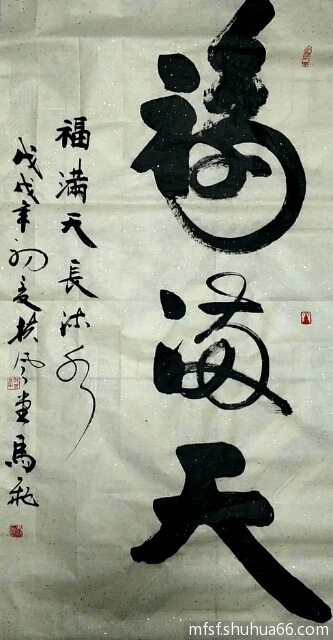 福滿天
福滿天長流水
戊戌年初夏扶风堂馬飛
mfsf.shuhua66.com